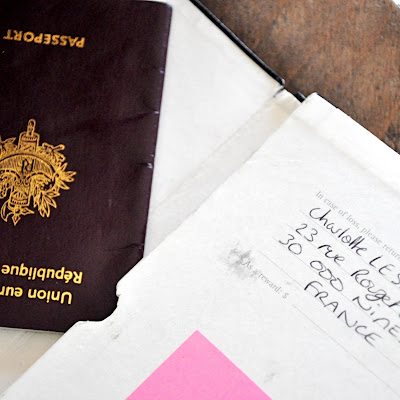 PASSEPORT
Union eur
République
In case of loss, please return
Charlotte LES
23 rue Rouge
30 000 NîME
FRANCE
As a reward: $